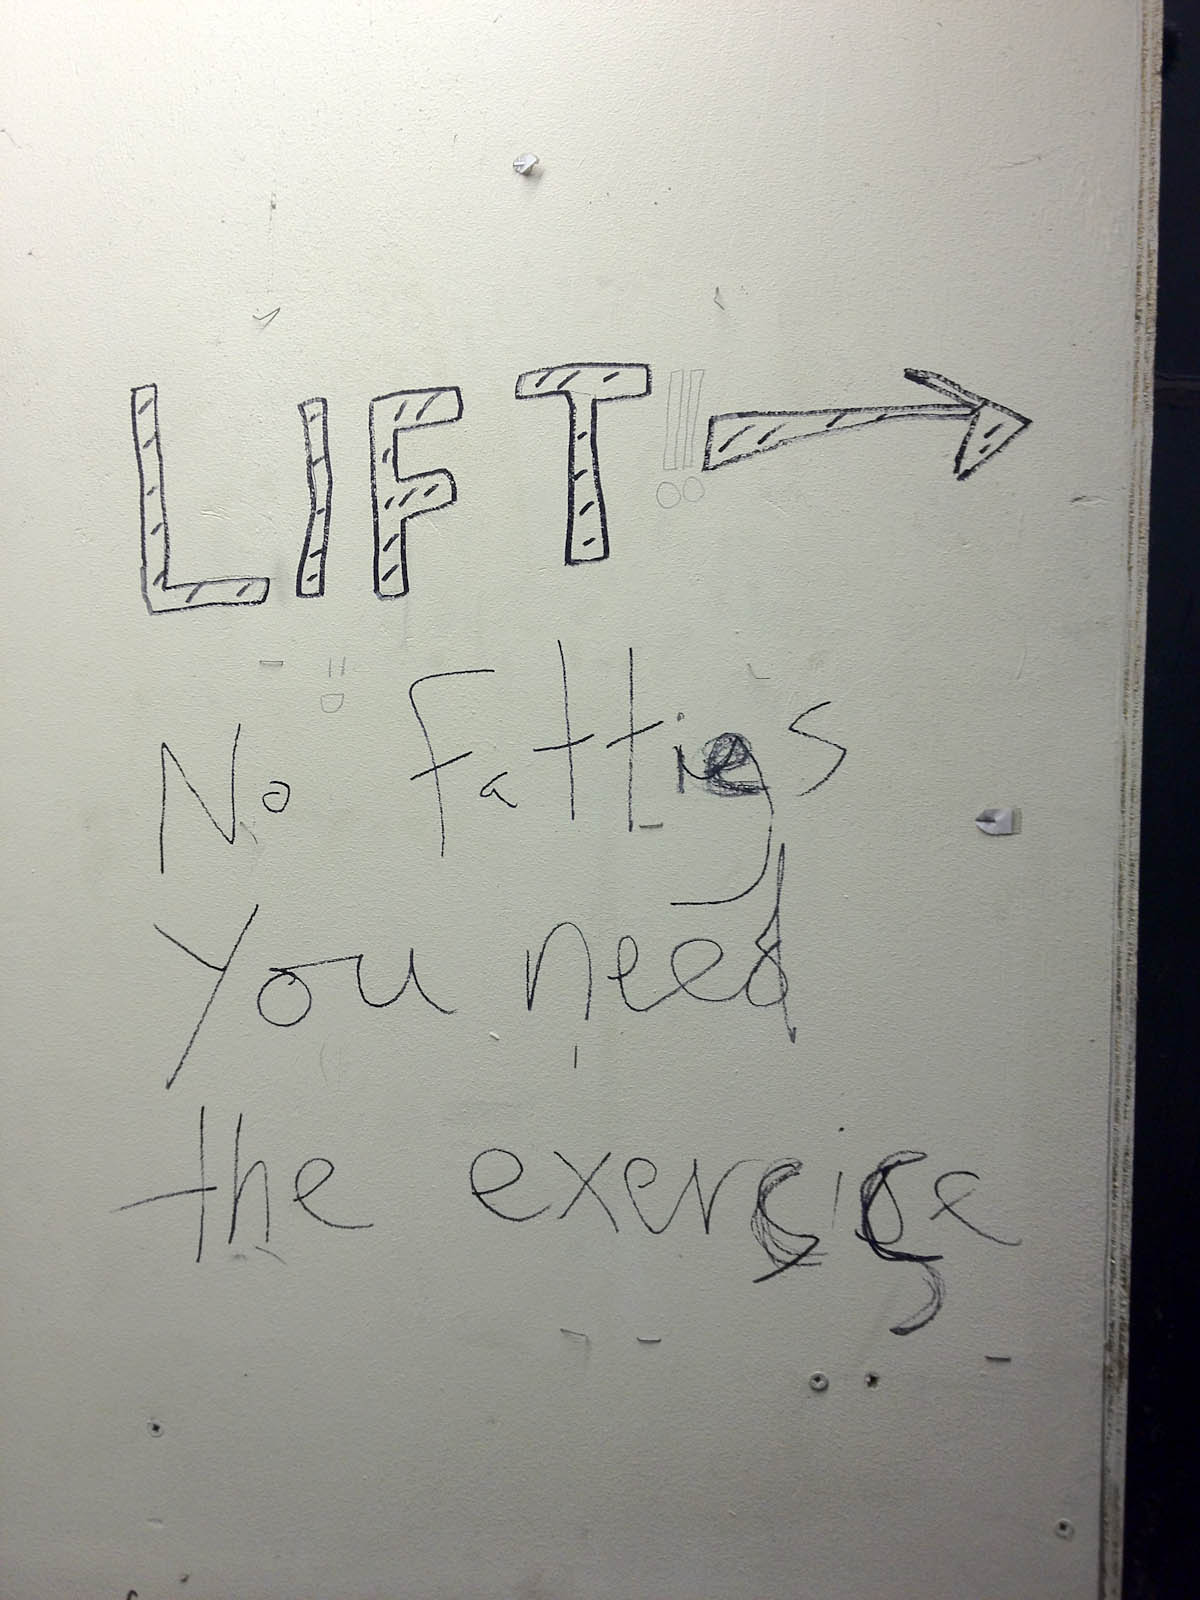 LIFT!!
No Fatties
You need
the exercise